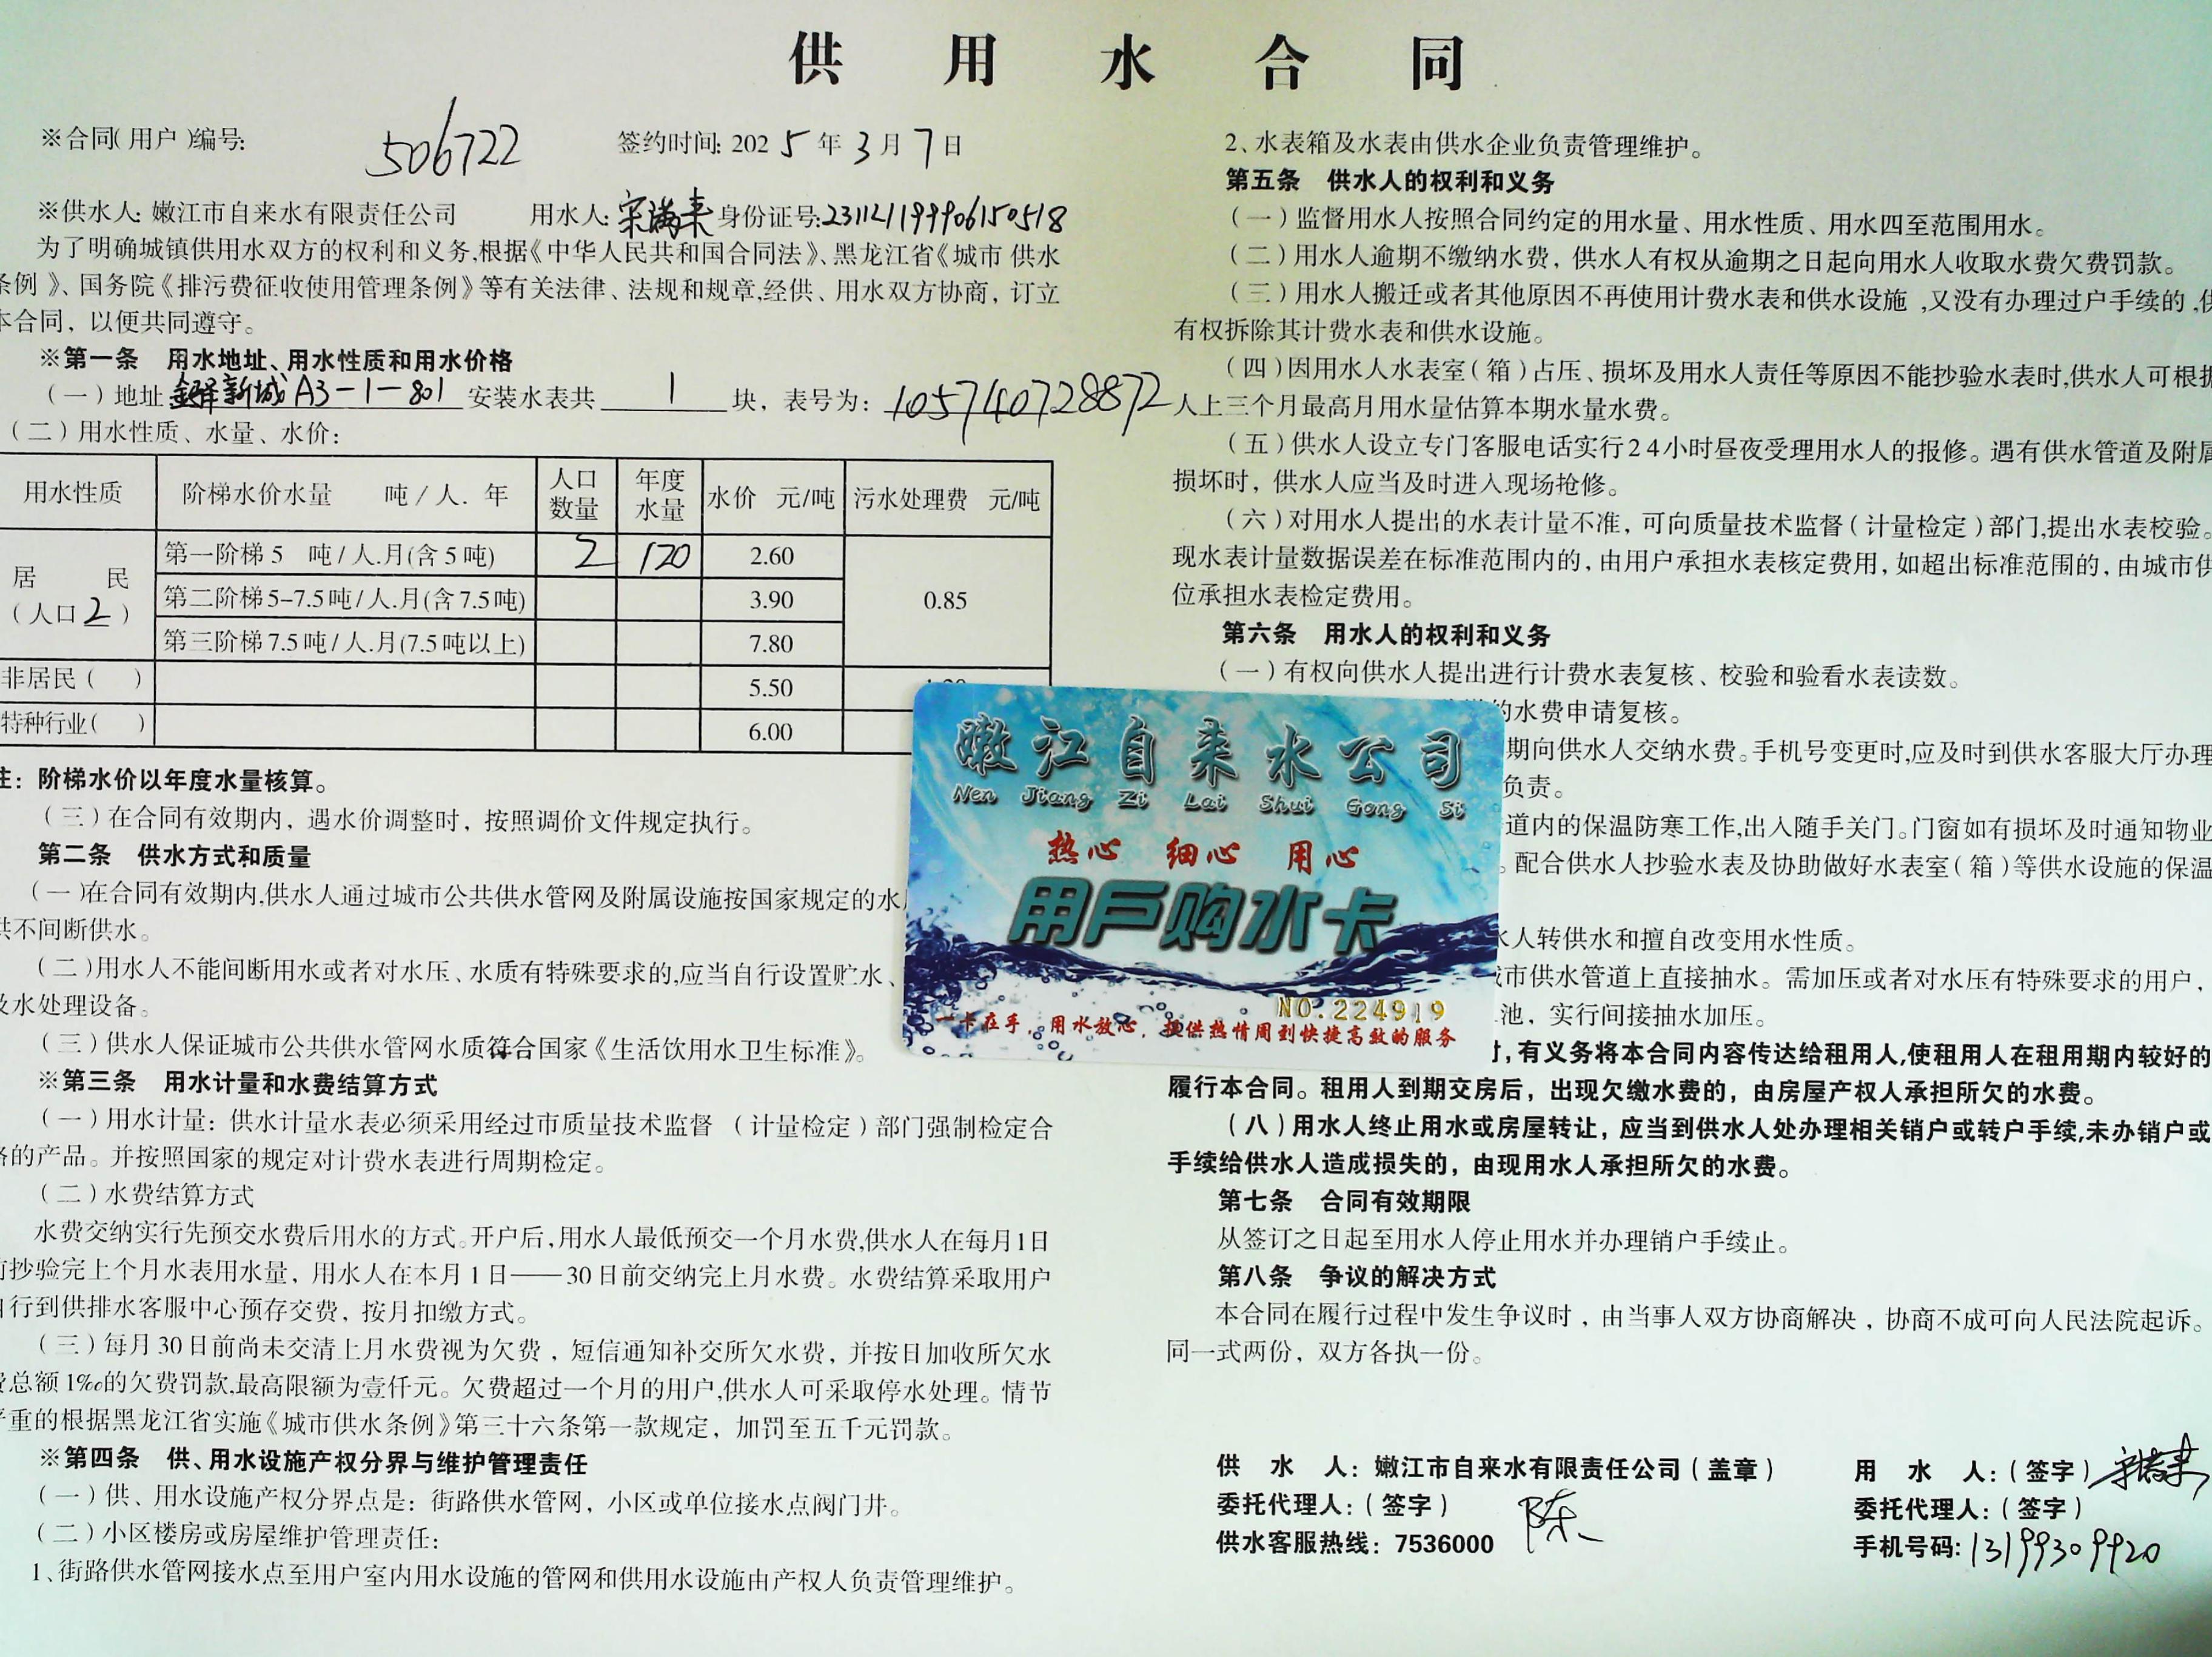 供用水合同
※合同(用户)编号: 506722 签约时间: 2025年3月7日
※供水人: 嫩江市自来水有限责任公司 用水人: 宋满来 身份证号: 231121199906150518
为了明确城镇供用水双方的权利和义务,根据《中华人民共和国合同法》、黑龙江省《城市供水
条例》、国务院《排污费征收使用管理条例》等有关法律、法规和规章,经供、用水双方协商，订立
本合同，以便共同遵守。
※第一条 用水地址、用水性质和用水价格
(一)地址: 新城A3-1-801 安装水表共 1 块，表号为: 1057140728872
(二)用水性质、水量、水价:
用水性质 阶梯水价水量 吨/人.年 人口数量 年度水量 水价 元/吨 污水处理费 元/吨
居民(人口2) 第一阶梯5 吨/人.月(含5吨) 2 120 2.60 0.85
第二阶梯5-7.5吨/人.月(含7.5吨) 3.90
第三阶梯7.5吨/人.月(7.5吨以上) 7.80
非居民( ) 5.50
特种行业( ) 6.00
注：阶梯水价以年度水量核算。
(三)在合同有效期内，遇水价调整时，按照调价文件规定执行。
第二条 供水方式和质量
(一)在合同有效期内,供水人通过城市公共供水管网及附属设施按国家规定的水
供不间断供水。
(二)用水人不能间断用水或者对水压、水质有特殊要求的,应当自行设置贮水、
及水处理设备。
(三)供水人保证城市公共供水管网水质符合国家《生活饮用水卫生标准》。
※第三条 用水计量和水费结算方式
(一)用水计量：供水计量水表必须采用经过市质量技术监督 (计量检定)部门强制检定合
格的产品。并按照国家的规定对计费水表进行周期检定。
(二)水费结算方式
水费交纳实行先预交水费后用水的方式。开户后,用水人最低预交一个月水费,供水人在每月1日
前抄验完上个月水表用水量，用水人在本月1日——30日前交纳完上月水费。水费结算采取用户
自行到供排水客服中心预存交费，按月扣缴方式。
(三)每月30日前尚未交清上月水费视为欠费，短信通知补交所欠水费，并按日加收所欠水
费总额1‰的欠费罚款,最高限额为壹仟元。欠费超过一个月的用户,供水人可采取停水处理。情节
严重的根据黑龙江省实施《城市供水条例》第三十六条第一款规定，加罚至五千元罚款。
※第四条 供、用水设施产权分界与维护管理责任
(一)供、用水设施产权分界点是：街路供水管网，小区或单位接水点阀门井。
(二)小区楼房或房屋维护管理责任:
1、街路供水管网接水点至用户室内用水设施的管网和供用水设施由产权人负责管理维护。
2、水表箱及水表由供水企业负责管理维护。
第五条 供水人的权利和义务
(一)监督用水人按照合同约定的用水量、用水性质、用水四至范围用水。
(二)用水人逾期不缴纳水费，供水人有权从逾期之日起向用水人收取水费欠费罚款。
(三)用水人搬迁或者其他原因不再使用计费水表和供水设施,又没有办理过户手续的,供
有权拆除其计费水表和供水设施。
(四)因用水人水表室(箱)占压、损坏及用水人责任等原因不能抄验水表时,供水人可根据
人上三个月最高月用水量估算本期水量水费。
(五)供水人设立专门客服电话实行24小时昼夜受理用水人的报修。遇有供水管道及附属
损坏时，供水人应当及时进入现场抢修。
(六)对用水人提出的水表计量不准，可向质量技术监督(计量检定)部门,提出水表校验。
现水表计量数据误差在标准范围内的，由用户承担水表核定费用，如超出标准范围的，由城市供
位承担水表检定费用。
第六条 用水人的权利和义务
(一)有权向供水人提出进行计费水表复核、校验和验看水表读数。
的水费申请复核。
期向供水人交纳水费。手机号变更时,应及时到供水客服大厅办理
负责。
道内的保温防寒工作,出入随手关门。门窗如有损坏及时通知物业
。配合供水人抄验水表及协助做好水表室(箱)等供水设施的保温
水人转供水和擅自改变用水性质。
城市供水管道上直接抽水。需加压或者对水压有特殊要求的用户，
池，实行间接抽水加压。
时,有义务将本合同内容传达给租用人,使租用人在租用期内较好的
履行本合同。租用人到期交房后，出现欠缴水费的，由房屋产权人承担所欠的水费。
(八)用水人终止用水或房屋转让，应当到供水人处办理相关销户或转户手续,未办销户或
手续给供水人造成损失的，由现用水人承担所欠的水费。
第七条 合同有效期限
从签订之日起至用水人停止用水并办理销户手续止。
第八条 争议的解决方式
本合同在履行过程中发生争议时，由当事人双方协商解决，协商不成可向人民法院起诉。
同一式两份，双方各执一份。
供水人：嫩江市自来水有限责任公司(盖章) 用水人:(签字) 宋满来
委托代理人:(签字) 陈 委托代理人:(签字)
供水客服热线：7536000 手机号码: 13199309920
嫩江自来水公司
Nen Jiang Zi Lai Shui Gong Si
热心 细心 用心
用户购水卡
NO.224919
一卡在手，用水放心，提供热情周到快捷高效的服务